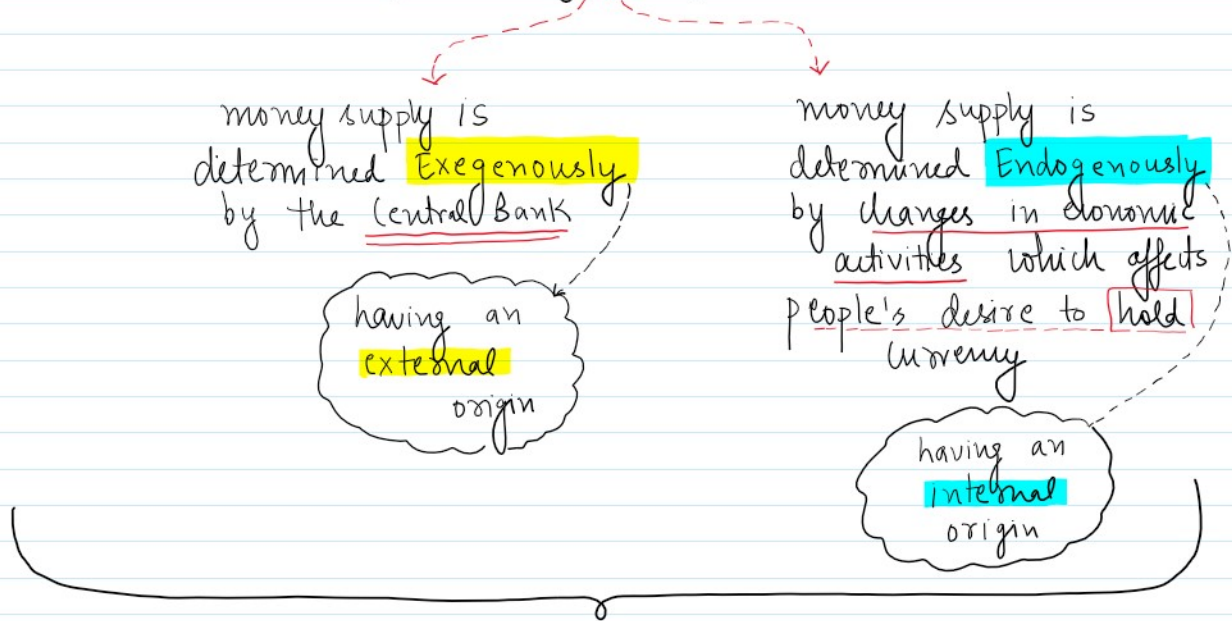 money supply is
determined Exegenously
by the Central Bank
having an
external
origin
money supply is
determined Endogenously
by changes in economic
activities which affects
people's desire to hold
currency
having an
internal
origin